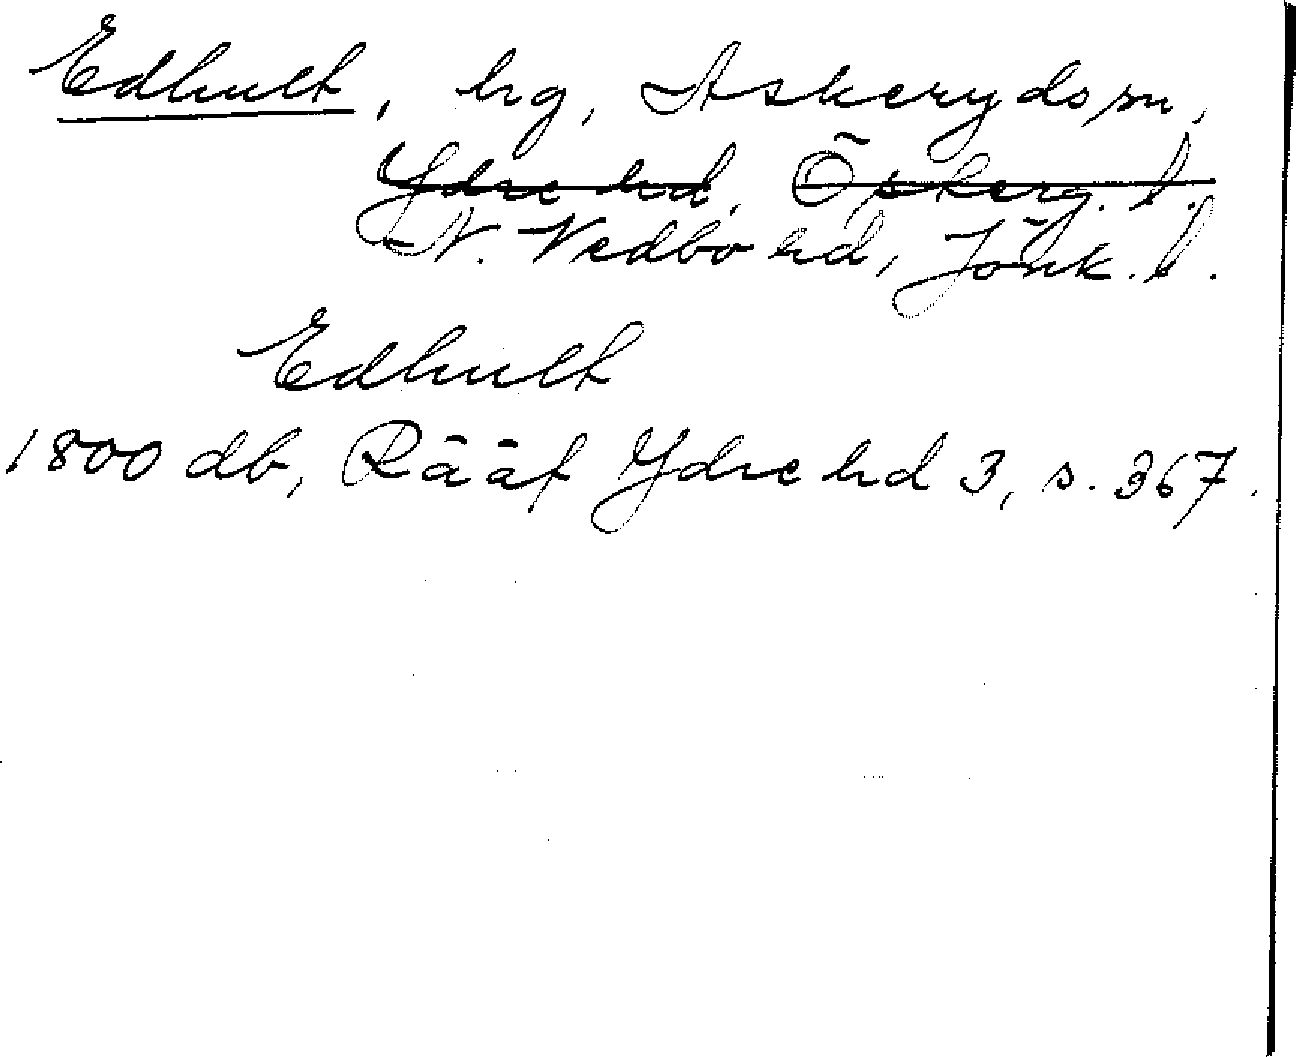 Edhult, hg, Askeryds sn,
Ydre hd, Öskerg. l.
N. Vedbo hd, Jönk. l.
Edhult
1800 db, Rääf Ydre hd 3, s. 367.